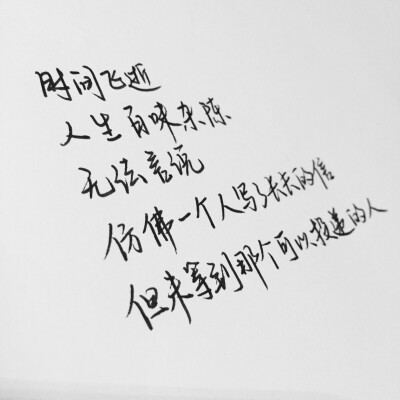 时间飞逝
人生百味杂陈
无法言说
仿佛一个人写了长长的信
但未等到那个可以投递的人